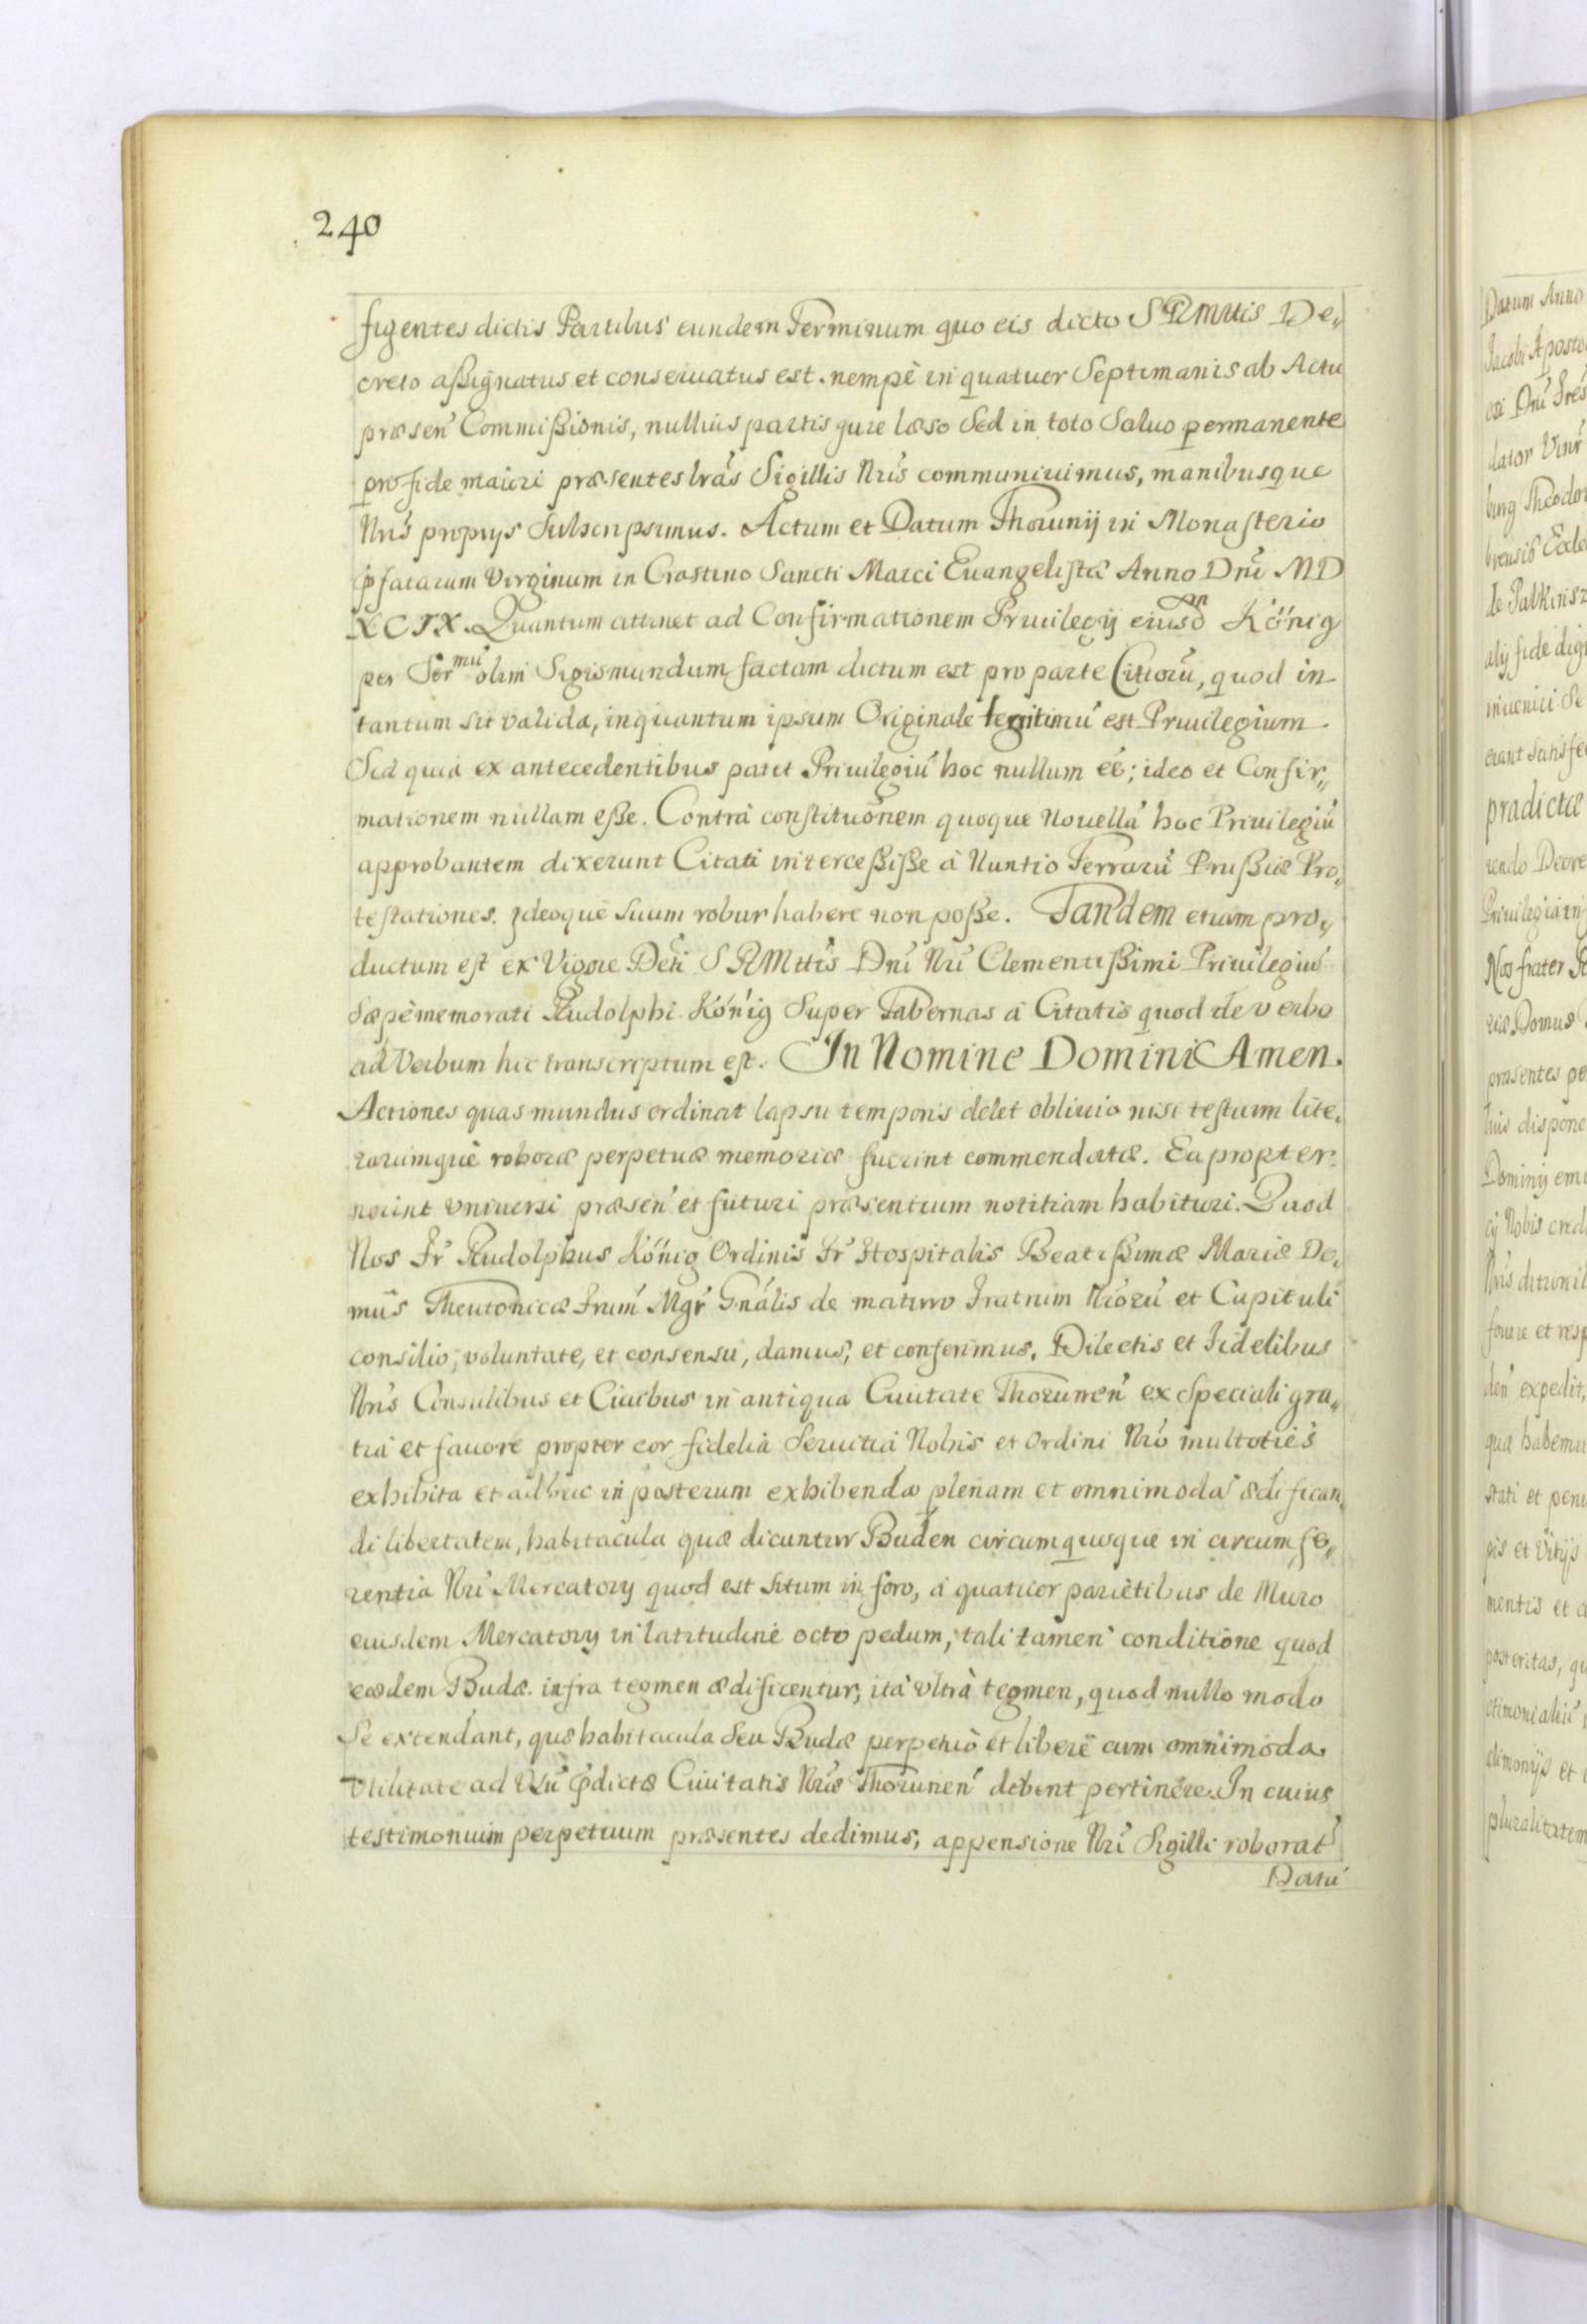 240
figentes dictis Partibus eundem Terminum quo eis dicto SRMttis De„
creto aßignatus et conseruatus est. nempè in quatuor Septimanis ab Actu
præsen' Commißionis, nullius partis gure læso Sed in toto Saluo permanente
pro fide maiori præsentes lrás Sigillis Nris communiuimus, manibusque
Nris proprys Subscripsimus. Actum et Datum Thorunij in Monasterio
p̃fatarum Virginum in Crastino Sancti Marci Euangelistæ Anno Dni MD
XCIX. Quantum attinet ad Confirmationem Priuilegij eiusd Königͫ
per Ser mu olim Sigismundum factam dictum est pro parte Cittorũ, quod in
tantum sit valida, inquantum ipsum Originale legitimũ est Priuilegium.
Sed quia ex antecedentibus patet Priuilegiũ hoc nullum eé; ideo et Confir„
mationem nullam eße. Contrà constituõnem quoque Nouellã hoc Priuilegiũ
approbantem dixerunt Citati interceßiße à Nuntio Terrarũ Prußiæ Pro„
testationes. Ideoque suum robur habere non poße. Tandem etiam pro„
ductum est ex Vigore Deti SRMttis Dni Nri Clementißimi Priuilegiũ
sæpè memorati Rudolphi König Super Tabernas à Citatis quod de verbo
ad Verbum hic transcriptum est. In Nomine Domini Amen.
Actiones quas mundus ordinat lapsu temporis delet obliuio nisi testium lite„
rarumque robore perpetuæ memoriæ fuerint commendatæ. Eapropter
nouint vniuersi præsen' et futuri præsentium notitiam habituri. Quod
Nos Fr Rudolphus König Ordinis Fr Hospitalis Beatißimæ Mariæ Do„
mũs Theutonicæ Frum Mgr Gnális de maturo Fratrum Nrorũ et Capituli
consilio, voluntate, et consensu, damus, et conferimus, Dilectis et Fidelibus
Nris Consulibus et Ciuibus in antiqua Ciuitate Thorunen' ex Speciali gra„
tia et fauore propter eor fidelia Seruitia Nobis et Ordini Nro multoties
exhibita et adhuc in posterum exhibenda plenam et omnimodã ædifican„
di libertatem, habitacula quæ dicuntur Buden circumquaque in circumfe„
rentia Nri Mercatory quod est situm in foro, à quatuor parietibus de Muro
eiusdem Mercatory in latitudine octo pedum, tali tamen conditione quod
eædem Budæ infra tegmen ædificentur, ita vltrà tegmen, quod nullo modo
Se extendant, quæ habitacula seu Budæ perpetuò et liberè cum omnimoda
Vtilitate ad Vsũ p̃dictæ Ciuitatis Nræ Thorunen' debent pertinere. In cuius
testimonium perpetuum præsentes dedimus, appensione Nri Sigilli roborat'
Datũ
Datum Anno
Jacobi Aposto
dator Vinr
burg Theodor
alij fide dig
inueniri Se
erant Satisfe
prædictæ
rendo Decre
Priuilegia in
Nos frater
riæ Domus
præsentes pe
huis dispone
Dominij emi
cij Nobis cred
fouere et resp
den' expedit,
qua habemu
stati et penu
pis et Vitijs
mentis et
posteritas, qu
pluralitatem